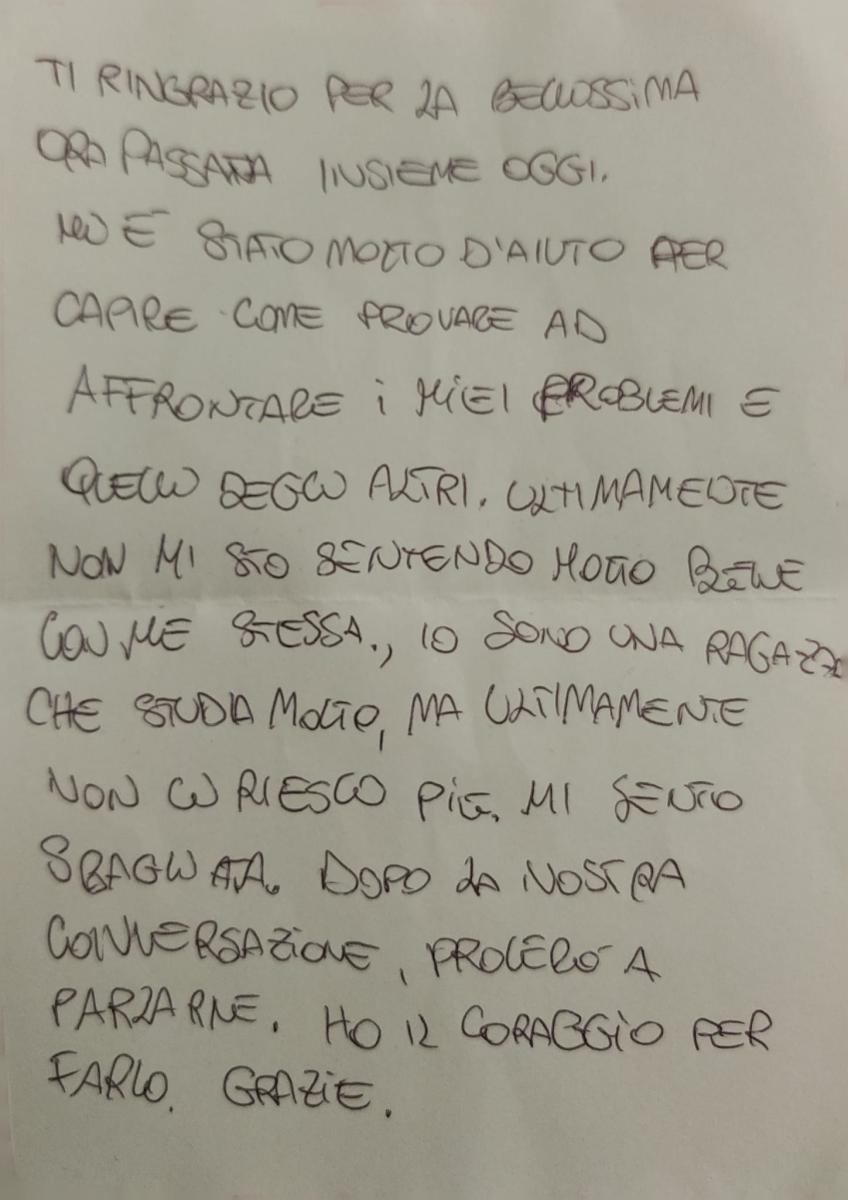 TI RINGRAZIO PER LA BELLISSIMA
ORA PASSATA INSIEME OGGI.
MI È STATO MOLTO D'AIUTO PER
CAPIRE COME PROVARE AD
AFFRONTARE i MIEI PROBLEMI E
QUELLI DEGLI ALTRI. ULTIMAMENTE
NON MI STO SENTENDO MOLTO BENE
CON ME STESSA., IO SONO UNA RAGAZZA
CHE STUDIA MOLTO, MA ULTIMAMENTE
NON CI RIESCO PIÙ. MI SENTO
SBAGLIATA. DOPO LA NOSTRA
CONVERSAZIONE, PROVERÒ A
PARLARNE. HO IL CORAGGIO PER
FARLO. GRAZIE.